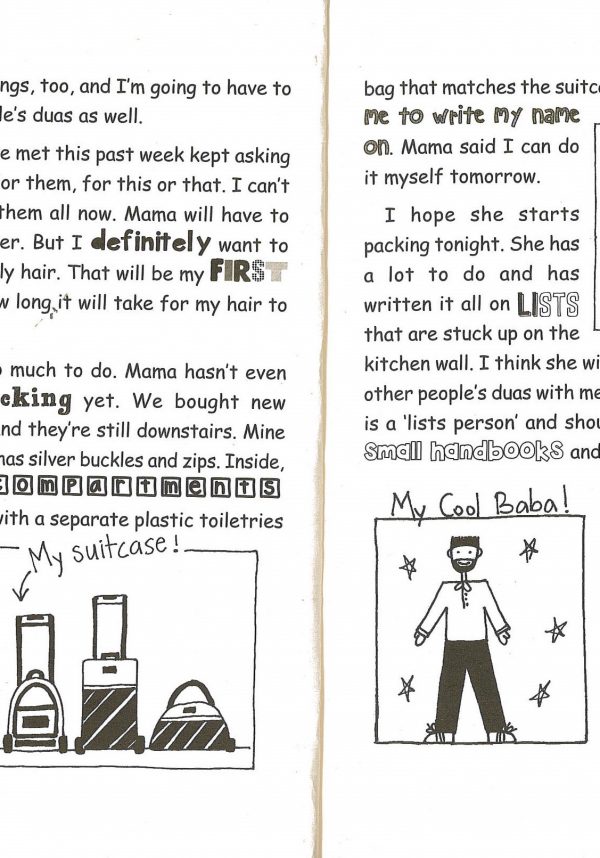 ngs, too, and I'm going to have to
le's duas as well.
e met this past week kept asking
or them, for this or that. I can't
them all now. Mama will have to
er. But I definitely want to
ly hair. That will be my FIRST
w long it will take for my hair to
o much to do. Mama hasn't even
cking yet. We bought new
nd they're still downstairs. Mine
has silver buckles and zips. Inside,
compartments
with a separate plastic toiletries
My suitcase!
bag that matches the suitc
me to write my name
on. Mama said I can do
it myself tomorrow.
I hope she starts
packing tonight. She has
a lot to do and has
written it all on LISTS
that are stuck up on the
kitchen wall. I think she wi
other people's duas with me
is a 'lists person' and shou
small handbooks and
My Cool Baba!